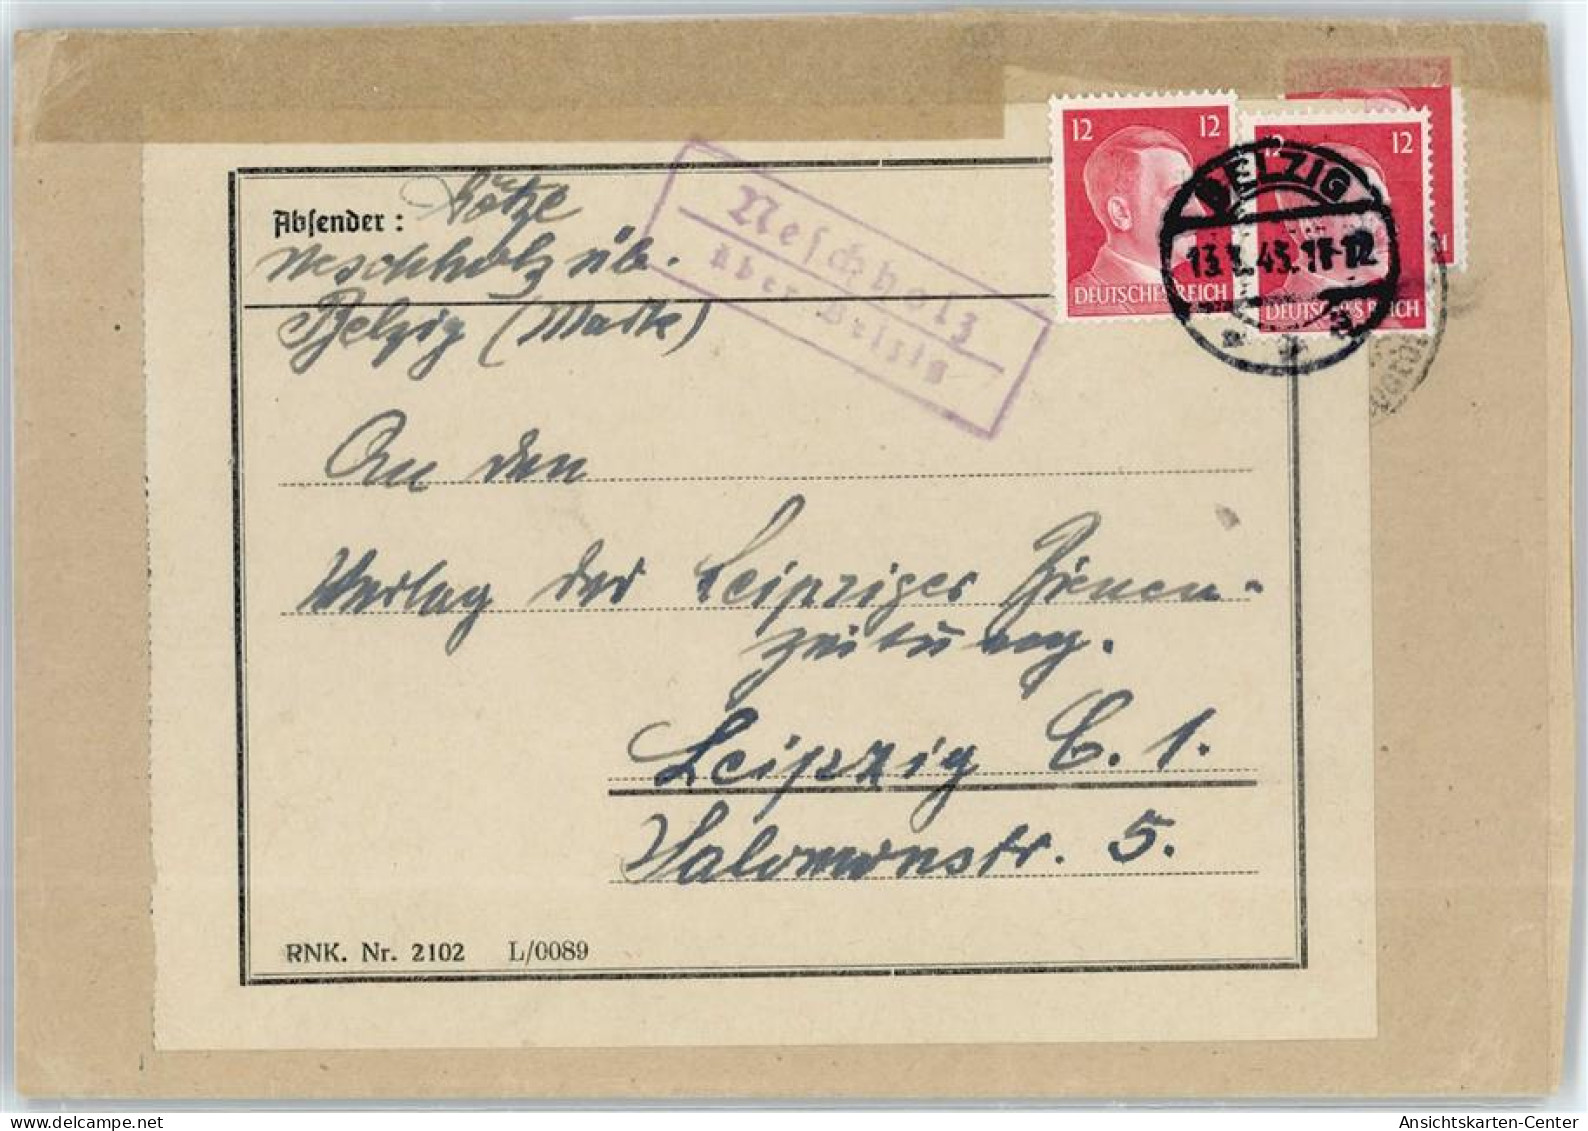 Absender: Götze
Neschholz üb.
Belzig (Mark)
Neschholz
über Belzig
12 12
DEUTSCHES REICH
12 12
DEUTSCHES REICH
BELZIG
13. 45.11-12
An den
Verlag der Leipziger Bienen-
zeitung.
Leipzig C. 1.
Salomonstr. 5.
RNK. Nr. 2102 L/0089
Ansichtskarten-Center